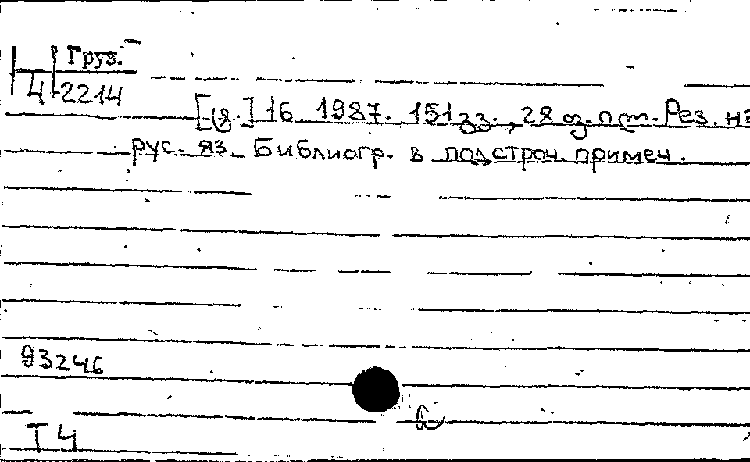 Груз.
4 2214
16 1987. 151 გვ., 28 Рез. на
рус. яз. Библиогр. в подстроч. примеч.
93246
T 4